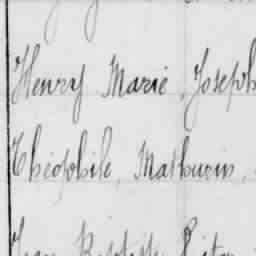 Henry Marie, Joseph
Théophile, Mathurin,
Jean Baptiste